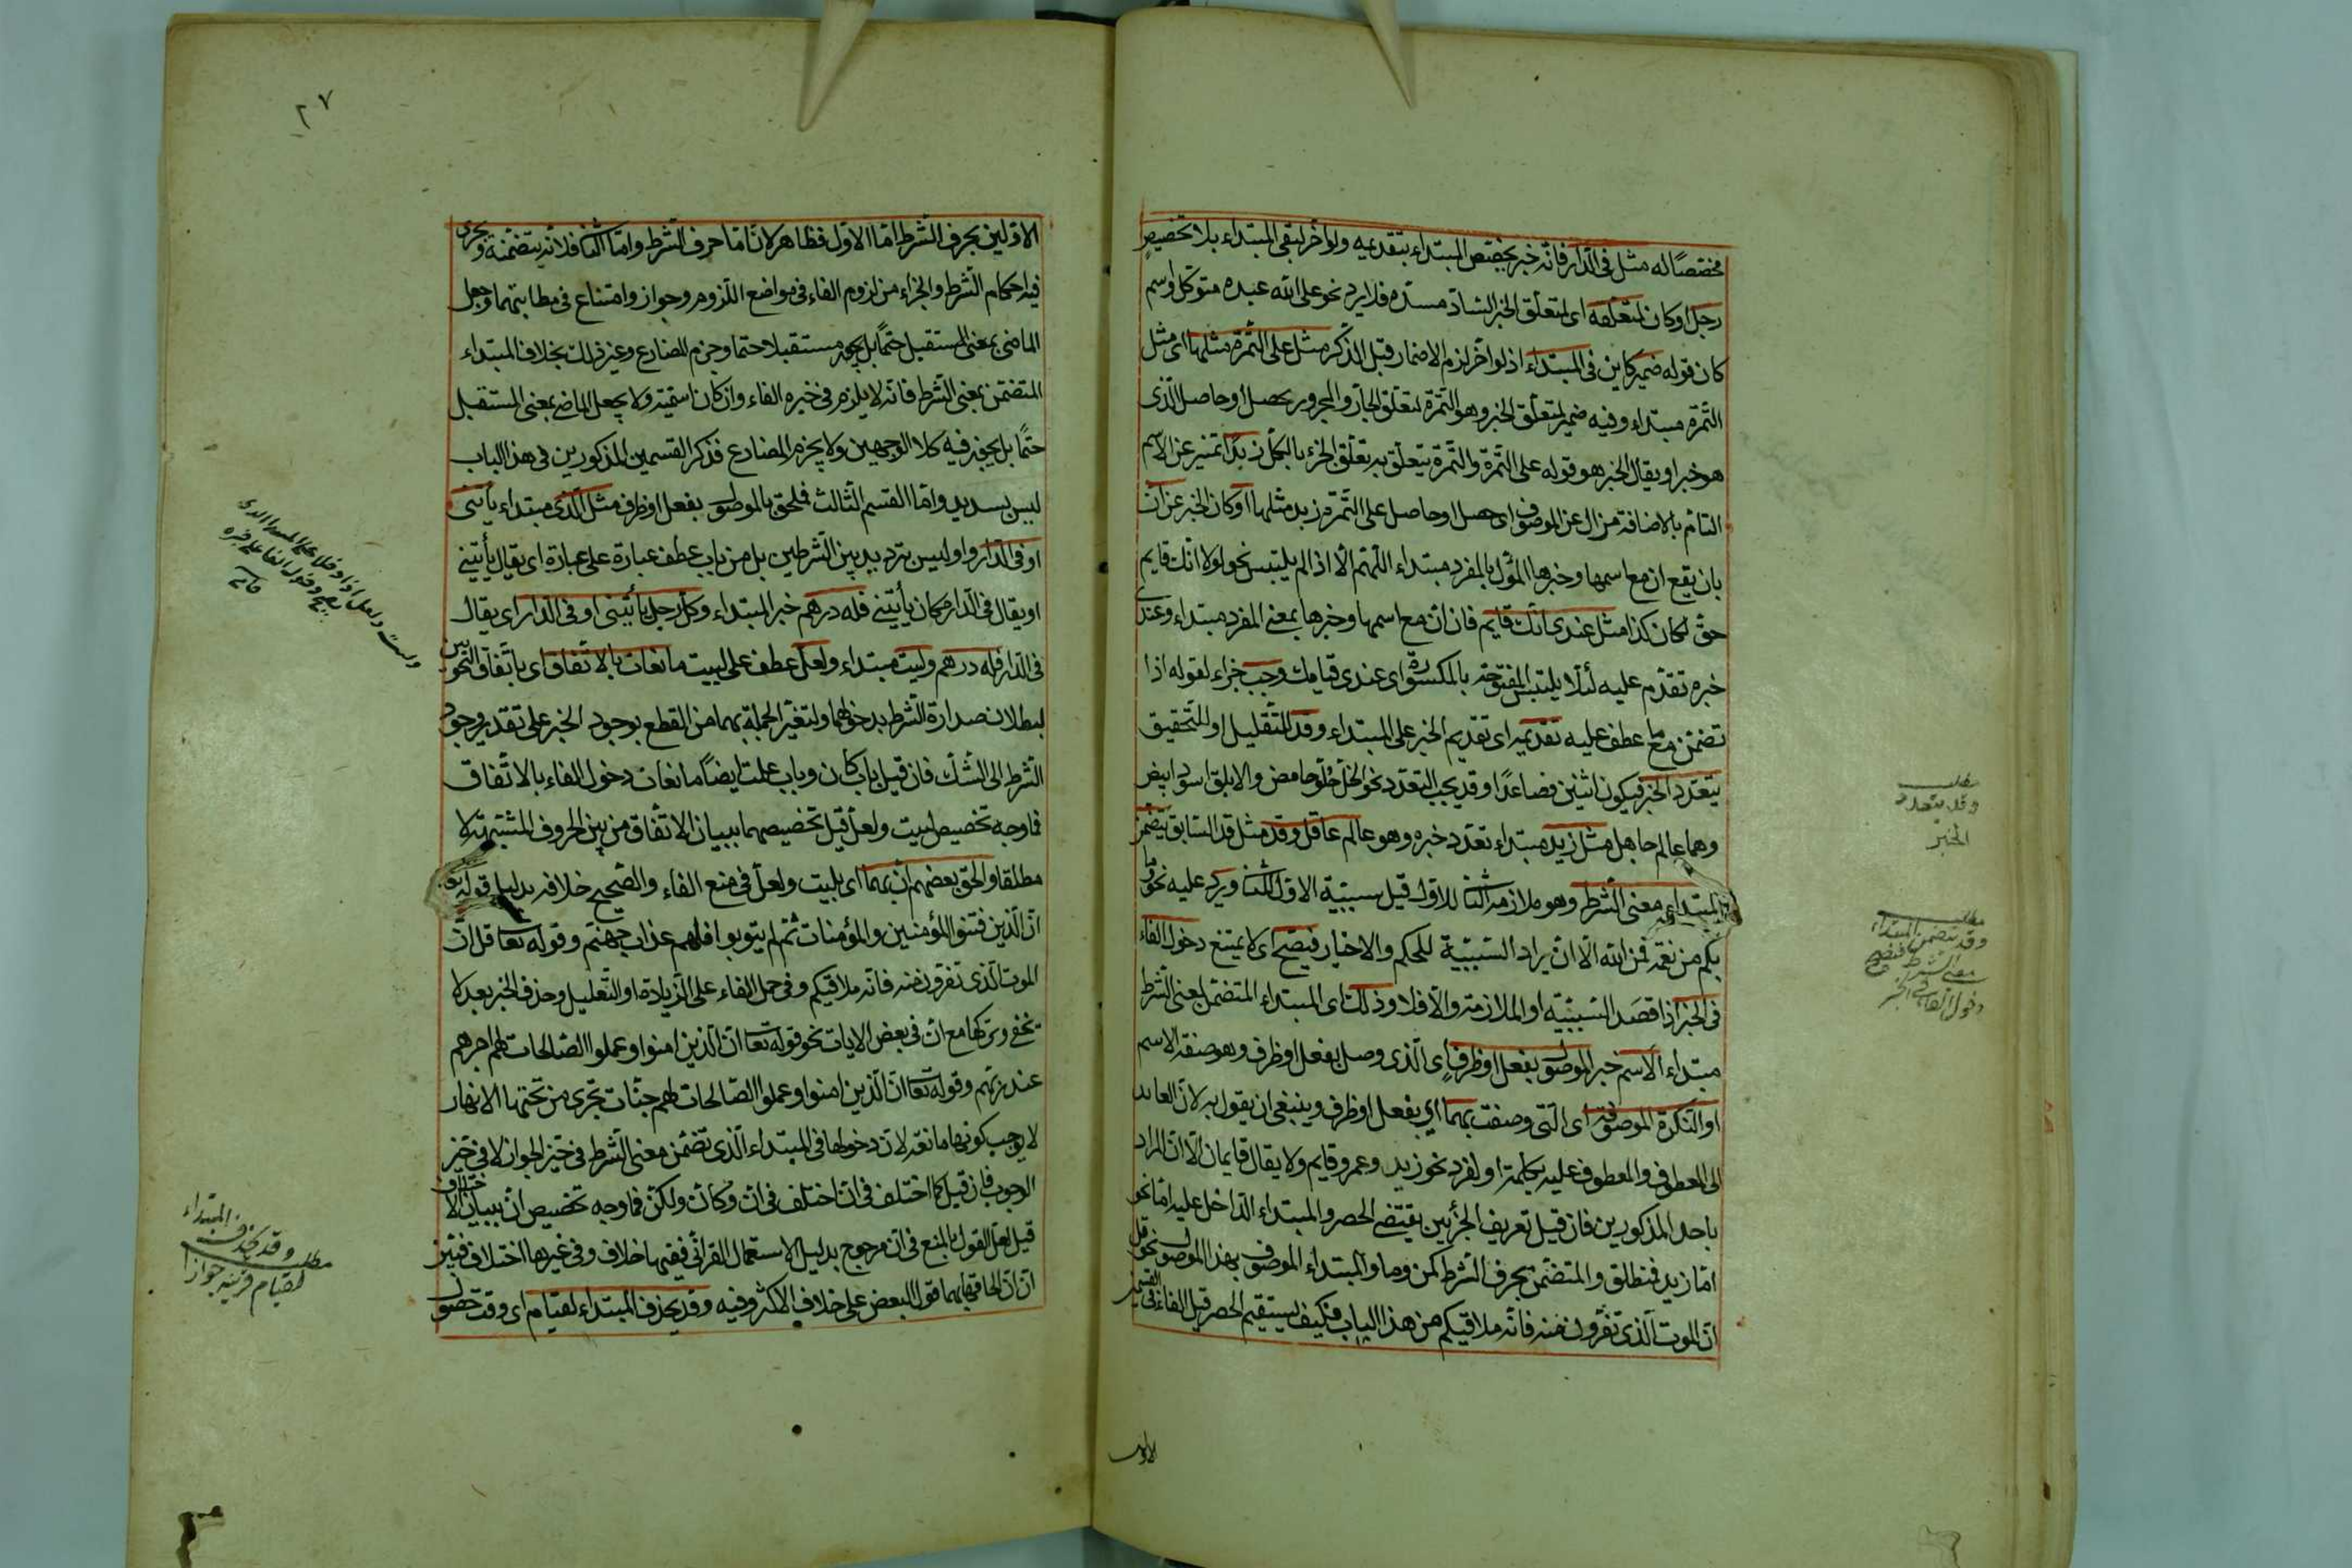 مختصًا له مثل فى الدّار فانّه خبر يختص المبتداء بتقديمه ولو اخر لبقى المبتداء بلا تخصيص
رجل او كان لمتعلّقه اى لمتعلّق الخبر السّادّ مسدّه فلا يرد نحو على الله عبده متوكل واسم
كان قوله ضمير كاين فى المبتداء اذ لو اخر لزم الاضمار قبل الذّكر مثل على التّمرة مثلها اى مثل
التّمرة مبتداء وفيه ضمير لمتعلّق الخبر وهو التّمرة لتعلّق الجارّ والمجرور بحصل او حاصل الّذى
هو خبر او يقال الخبر هو قوله على التّمرة والتّمرة يتعلّق به تعلّق الجزء بالكلّ زبدًا تمييز عن الاسم
التّام بالاضافة مزال عن الموصوف اى حصل او حاصل على التّمرة زبد مثلها او كان الخبر عن انّ
بان يقع ان مع اسمها وخبرها المأوّل بالمفرد مبتداء اللّهم الّا اذا لم يلتبس نحو لولا انّك قايم
حقّ لكان كذا مثل عندى انّك قايم فان انّ مع اسمها وخبرها بمعنى المفرد مبتداء وعندى
خبره تقدّم عليه لئلّا يلتبس المفتوحة بالمكسورة اى عندى قيامك وجب جزاء لقوله اذا
تضمّن مع ما عطف عليه تقديمه اى تقديم الخبر على المبتداء وقد للتّقليل او للتّحقيق
يتعدّد الخبر فيكون اثنين فصاعدًا وقد يجب التعدّد نحو الخلّ حلو حامض والابلق اسود ابيض
وهما عالم جاهل مثل زيد مبتداء تعدّد خبره وهو عالم عاقل وقد مثل قد السّابق يتضمّن
المبتداء معنى الشّرط وهو ملازمة الثّانى للاوّل قيل سببيّة الاوّل للثّانى ويرد عليه نحو وما
بكم من نعمة فمن الله الّا ان يراد السّببيّة للحكم والاخبار فيصحّ اى لا يمتنع دخول الفاء
فى الخبر اذا قصد السّببيّة او الملازمة والّا فلا وذلك اى المبتداء المتضمّن لمعنى الشّرط
مبتداء الاسم خبر الموصول بفعل او ظرف اى الّذى وصل بفعل او ظرف وهو صفة الاسم
او النّكرة الموصوفة اى الّتى وصفت بهما اى بفعل او ظرف وينبغى ان يقول به لانّ العايد
الى المعطوف والمعطوف عليه بكلمة او لفرد نحو زيد وعمرو قايم ولا يقال قايمان الّا انّ المراد
باحد المذكورين فان قيل تعريف الجزئين يقتضى الحصر والمبتداء الدّاخل عليه امّا نحو
امّا زيد فمنطلق والمتضمّن بحرف الشّرط كمن وما والمبتداء الموصوف بهذا الموصول نحو قل
انّ الموت الّذى تفرّون منه فانّه ملاقيكم من هذا الباب فكيف يستقيم الحصر قيل الفاء فى القسمين
مطلب
وقد يتعدد
الخبر
مطلب
وقد يتضمن المبتداء
معنى الشرط فيصح
دخول الفاء فى الخبر
الاولين
٢٧
الاوّلين بحرف الشّرط امّا الاوّل فظاهر لانّ امّا حرف الشّرط وامّا الثّانى فلانّه يتضمّنه ويجرى
فيه احكام الشّرط والجزاء من لزوم الفاء فى مواضع اللّزوم وجواز وامتناع فى مظانّهما وجعل
الماضى بمعنى المستقبل حتمًا بل يجعله مستقبلا حتما وجزم المضارع وغير ذلك بخلاف المبتداء
المتضمّن بمعنى الشّرط فانّه لا يلزم فى خبره الفاء وان كان اسميّة ولا يجعل الماضى بمعنى المستقبل
حتمًا بل يجوز فيه كلا الوجهين ولا يجزم المضارع فذكر القسمين المذكورين فى هذا الباب
ليس بسديد وامّا القسم الثّالث فملحق بالموصول بفعل او ظرف مثل الّذى مبتداء يأتينى
او فى الدّار واو ليس ترديد بين الشّرطين بل من باب عطف عبارة على عبارة اى يقال يأتينى
او يقال فى الدّار مكان يأتينى فله درهم خبر المبتداء وكلّ رجل يأتينى او فى الدّار اى يقال
فى الدّار فله درهم وليت مبتداء ولعلّ عطف على ليت مانعان بالاتّفاق اى باتّفاق النّحويين
لبطلان صدارة الشّرط بدخولهما ولتغيّر الجملة بهما من القطع بوجود الخبر على تقدير وجود
الشّرط الى الشّكّ فان قيل باب كان وباب علمت ايضًا مانعان دخول الفاء بالاتّفاق
فما وجه تخصيص ليت ولعلّ قيل تخصيصهما ببيان الاتّفاق من بين الحروف المشبّهة لا
مطلقا والحق بعضهم انّ بهما اى بليت ولعلّ فى منع الفاء والصّحيح خلافه بدليل قوله تعا
انّ الّذين فتنوا المؤمنين والمؤمنات ثمّ لم يتوبوا فلهم عذاب جهنّم وقوله تعا قل انّ
الموت الّذى تفرّون منه فانّه ملاقيكم وفى حمل الفاء على الزّيادة او التّعليل وحذف الخبر بعد لا
تخفى وتركها مع انّ فى بعض الايات نحو قوله تعا انّ الّذين امنوا وعملوا الصّالحات لهم اجرهم
عند ربّهم وقوله تعا انّ الّذين امنوا وعملوا الصّالحات لهم جنّات تجرى من تحتها الانهار
لا يوجب كونها مانعة لانّ دخولها فى المبتداء الّذى تضمّن معنى الشّرط فى حيّز الجواز لا فى حيّز
الوجوب فان قيل كما اختلف فى انّ اختلف فى انّ وكأنّ ولكنّ فما وجه تخصيص انّ ببيان الاختلاف
قيل لعلّ القول بالمنع فى انّ مرجوح بدليل الاستعمال القرآنى ففيها خلاف وفى غيرها اختلاف فتبيّن
انّ انّ الحاقها بهما قول البعض على خلاف الاكثر وفيه وقد يحذف المبتداء لقيام اى وقت حصول
مطلب وقد يحذف المبتداء
لقيام قرينة جوازا